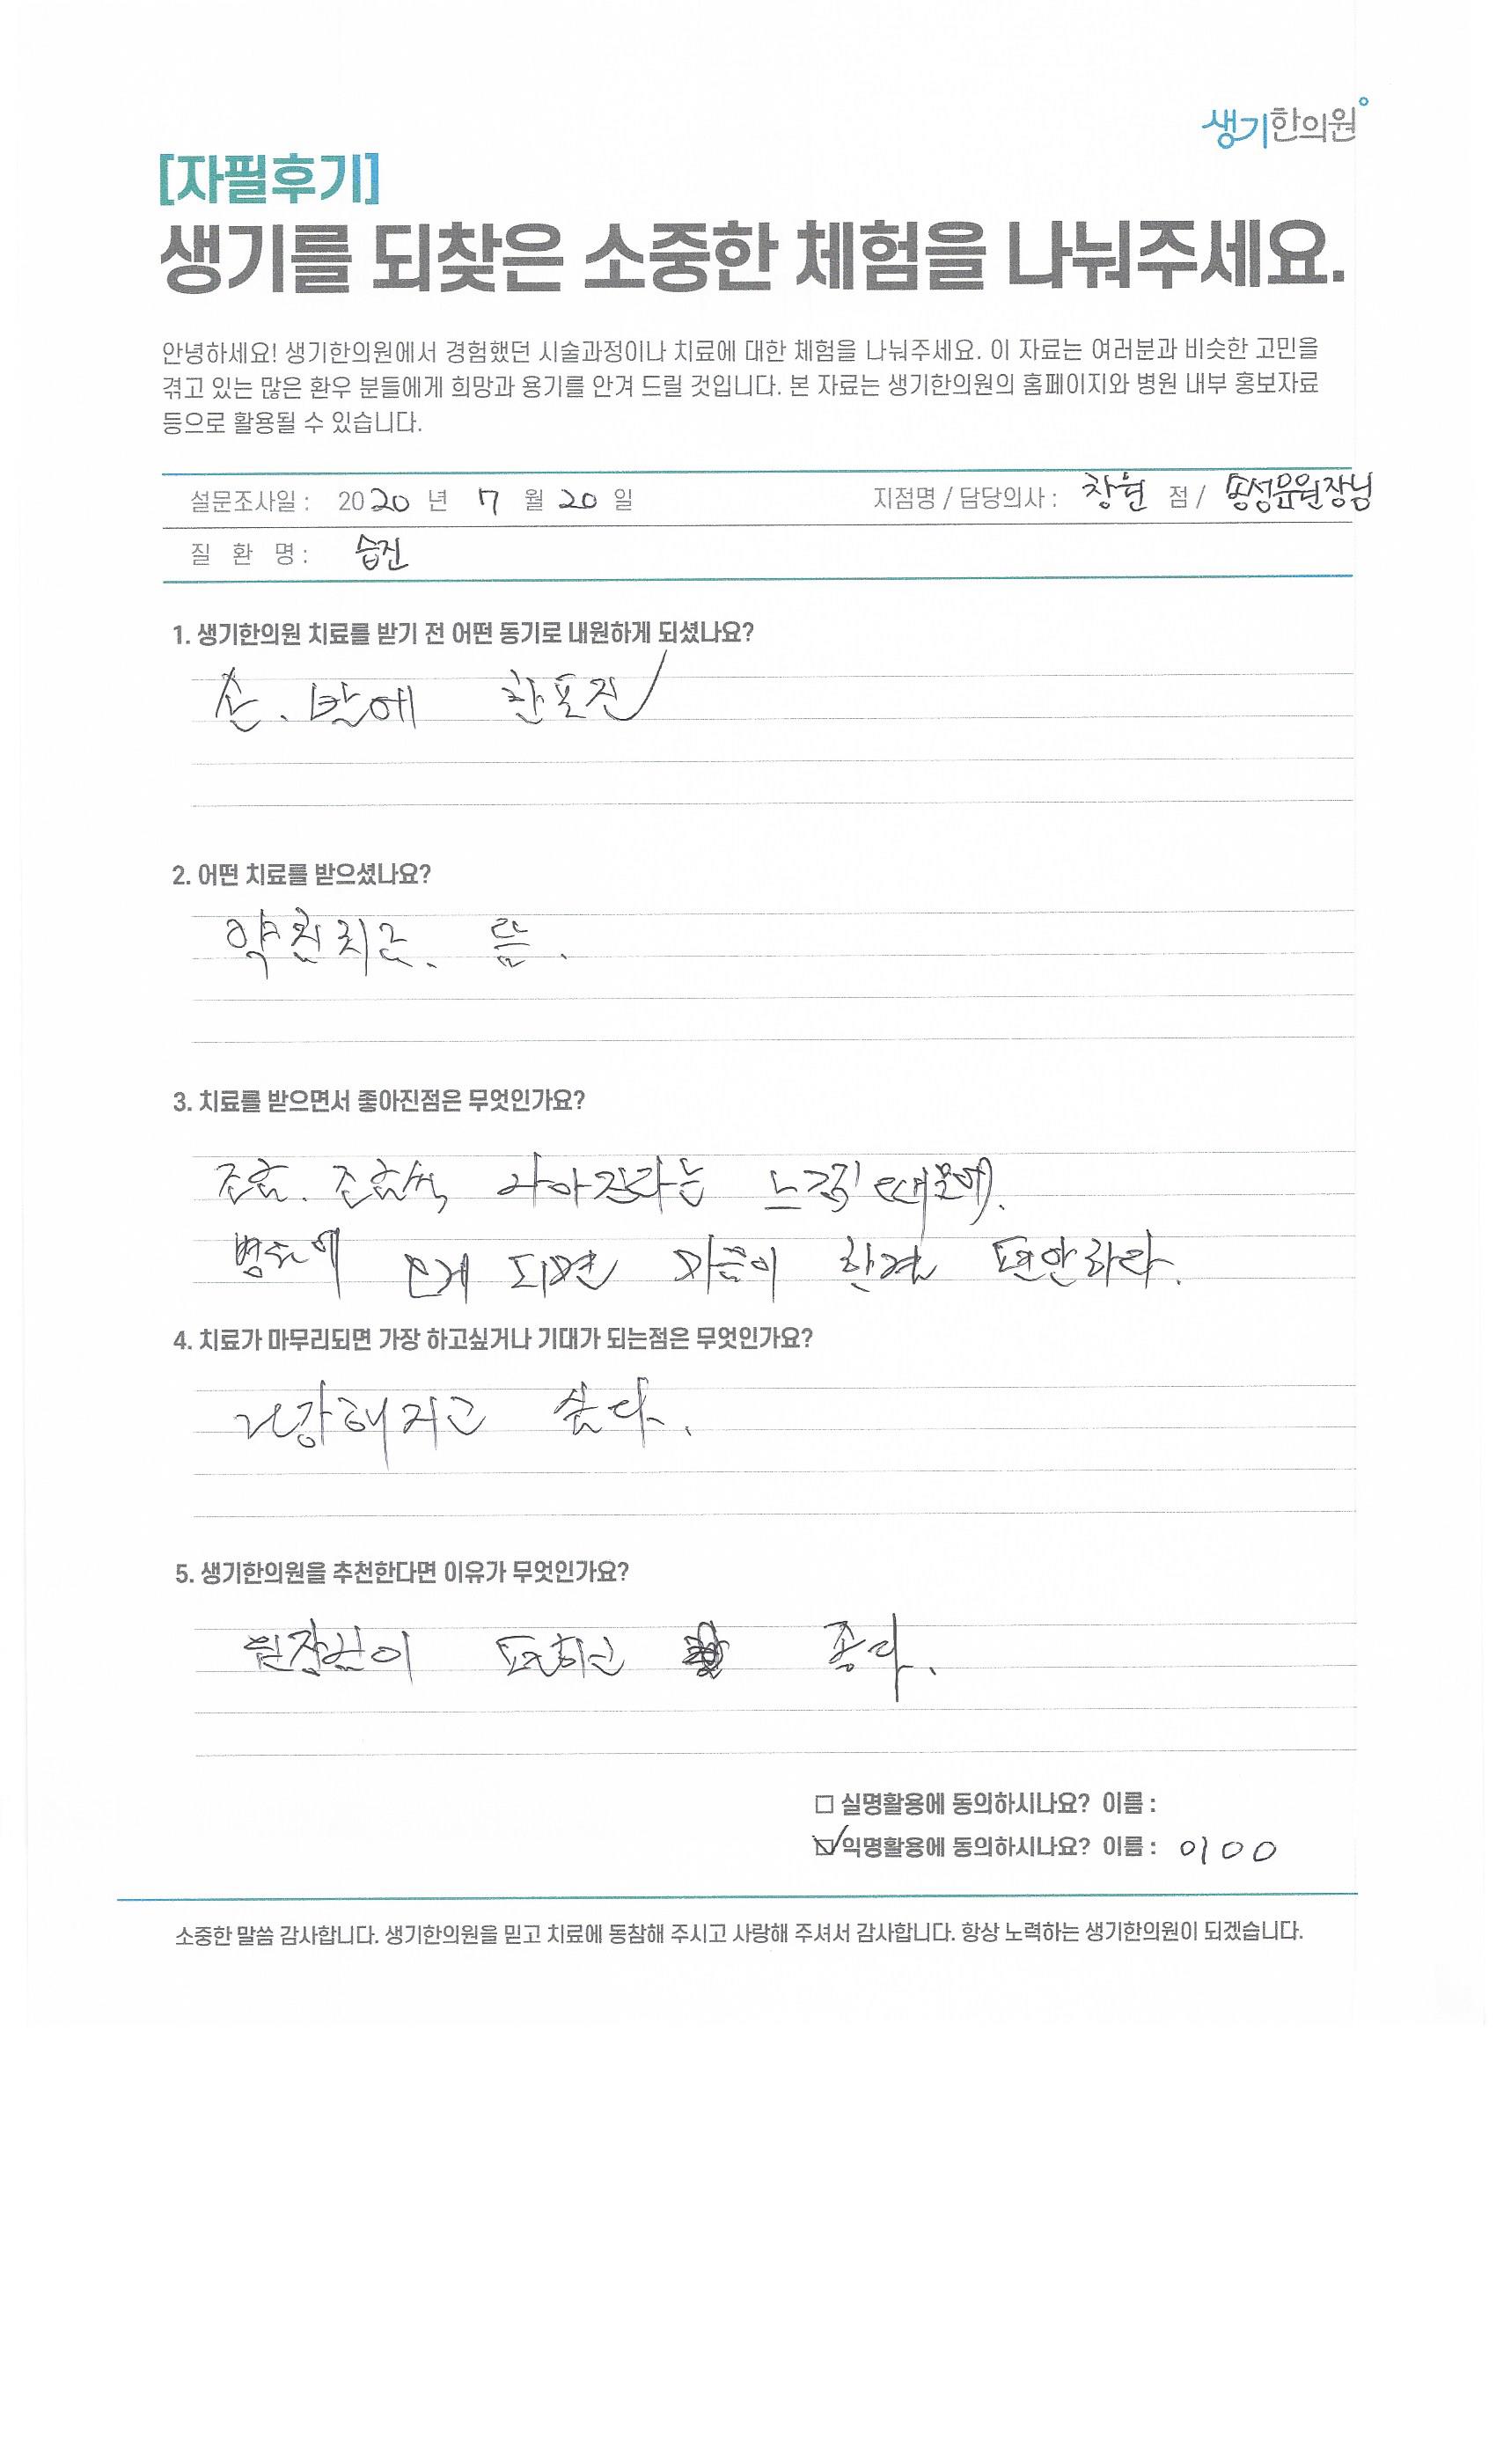 생기한의원
[자필후기]
생기를 되찾은 소중한 체험을 나눠주세요.
안녕하세요! 생기한의원에서 경험했던 시술과정이나 치료에 대한 체험을 나눠주세요. 이 자료는 여러분과 비슷한 고민을
겪고 있는 많은 환우 분들에게 희망과 용기를 안겨 드릴 것입니다. 본 자료는 생기한의원의 홈페이지와 병원 내부 홍보자료
등으로 활용될 수 있습니다.
설문조사일 : 2020 년 7 월 20 일 지점명 / 담당의사 : 창원 점 / 송성문원장님
질 환 명 : 습진
1. 생기한의원 치료를 받기 전 어떤 동기로 내원하게 되셨나요?
손. 발에 한포진
2. 어떤 치료를 받으셨나요?
약침치료. 뜸.
3. 치료를 받으면서 좋아진점은 무엇인가요?
조금. 조금씩 나아진다는 느낌 때문에.
병원에 오게 되면 마음이 한결 편안하다.
4. 치료가 마무리되면 가장 하고싶거나 기대가 되는점은 무엇인가요?
건강해지고 싶다.
5. 생기한의원을 추천한다면 이유가 무엇인가요?
원장님이 편하고 좋다.
실명활용에 동의하시나요? 이름 :
익명활용에 동의하시나요? 이름 : 이00
소중한 말씀 감사합니다. 생기한의원을 믿고 치료에 동참해 주시고 사랑해 주셔서 감사합니다. 항상 노력하는 생기한의원이 되겠습니다.